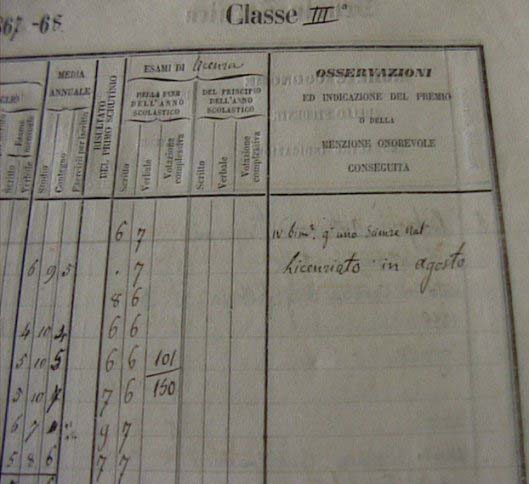 867-68
Classe III.ª
GLIO
MEDIA
ANNUALE
RISULTATO
DEL PRIMO SCRUTINIO
ESAMI DI licenza
NELLA FINE
DELL'ANNO
SCOLASTICO
DEL PRINCIPIO
DELL'ANNO
SCOLASTICO
OSSERVAZIONI
ED INDICAZIONE DEL PREMIO
O DELLA
MENZIONE ONOREVOLE
CONSEGUITA
Scritto
Esame
Verbale
Studio
Contegno
Esercizi per iscritto
Scritto
Verbale
Votazione
complessiva
Scritto
Verbale
Votazione
complessiva
6 7
6 9 5 . 7
Licenziato in agosto
8 6
4 10 4 6 6
5 10 5 6 6 101
150
5 10 4 7 6
6 7 9 7
5 8 6 7 7